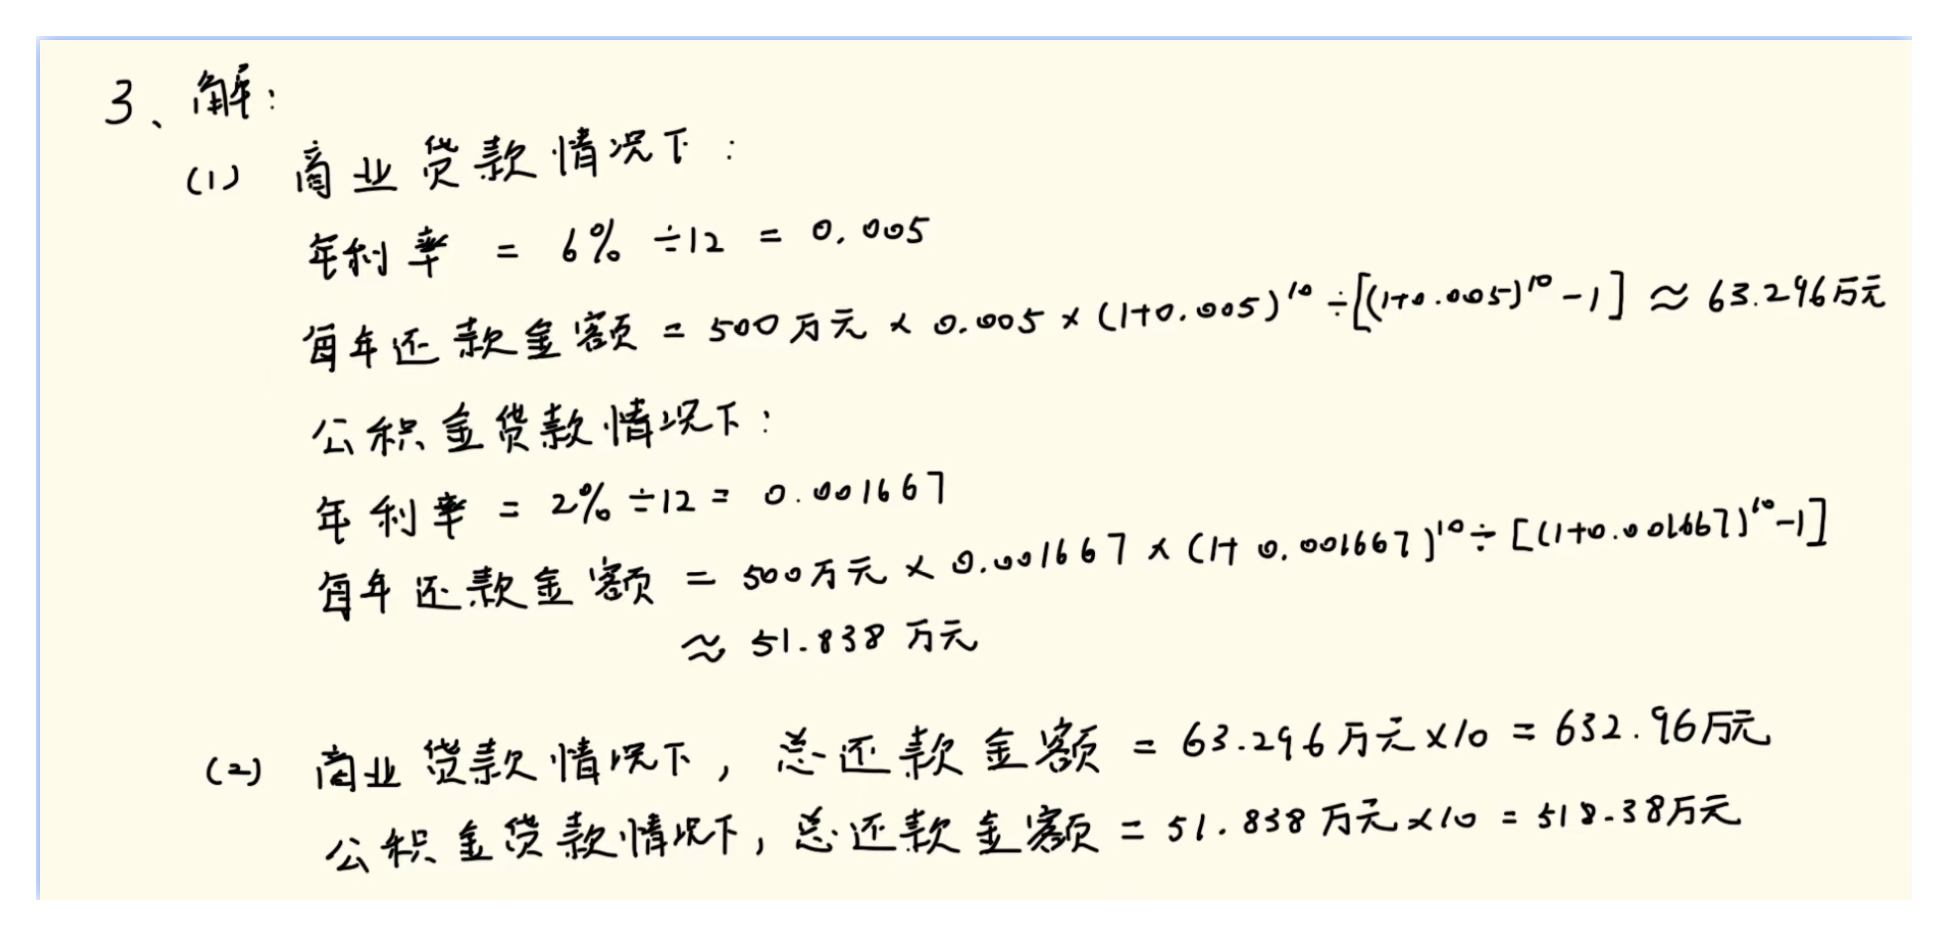 3、解：
(1) 商业贷款情况下：
年利率 = 6% ÷12 = 0.005
每年还款金额 = 500万元 × 0.005 × (1+0.005)¹⁰ ÷[(1+0.005)¹⁰ -1] ≈ 63.296万元
公积金贷款情况下：
年利率 = 2% ÷12 = 0.001667
每年还款金额 = 500万元 × 0.001667 × (1+0.001667)¹⁰ ÷ [(1+0.001667)¹⁰-1]
≈ 51.838 万元
(2) 商业贷款情况下，总还款金额 = 63.296万元×10 = 632.96万元
公积金贷款情况下，总还款金额 = 51.838万元×10 = 518.38万元